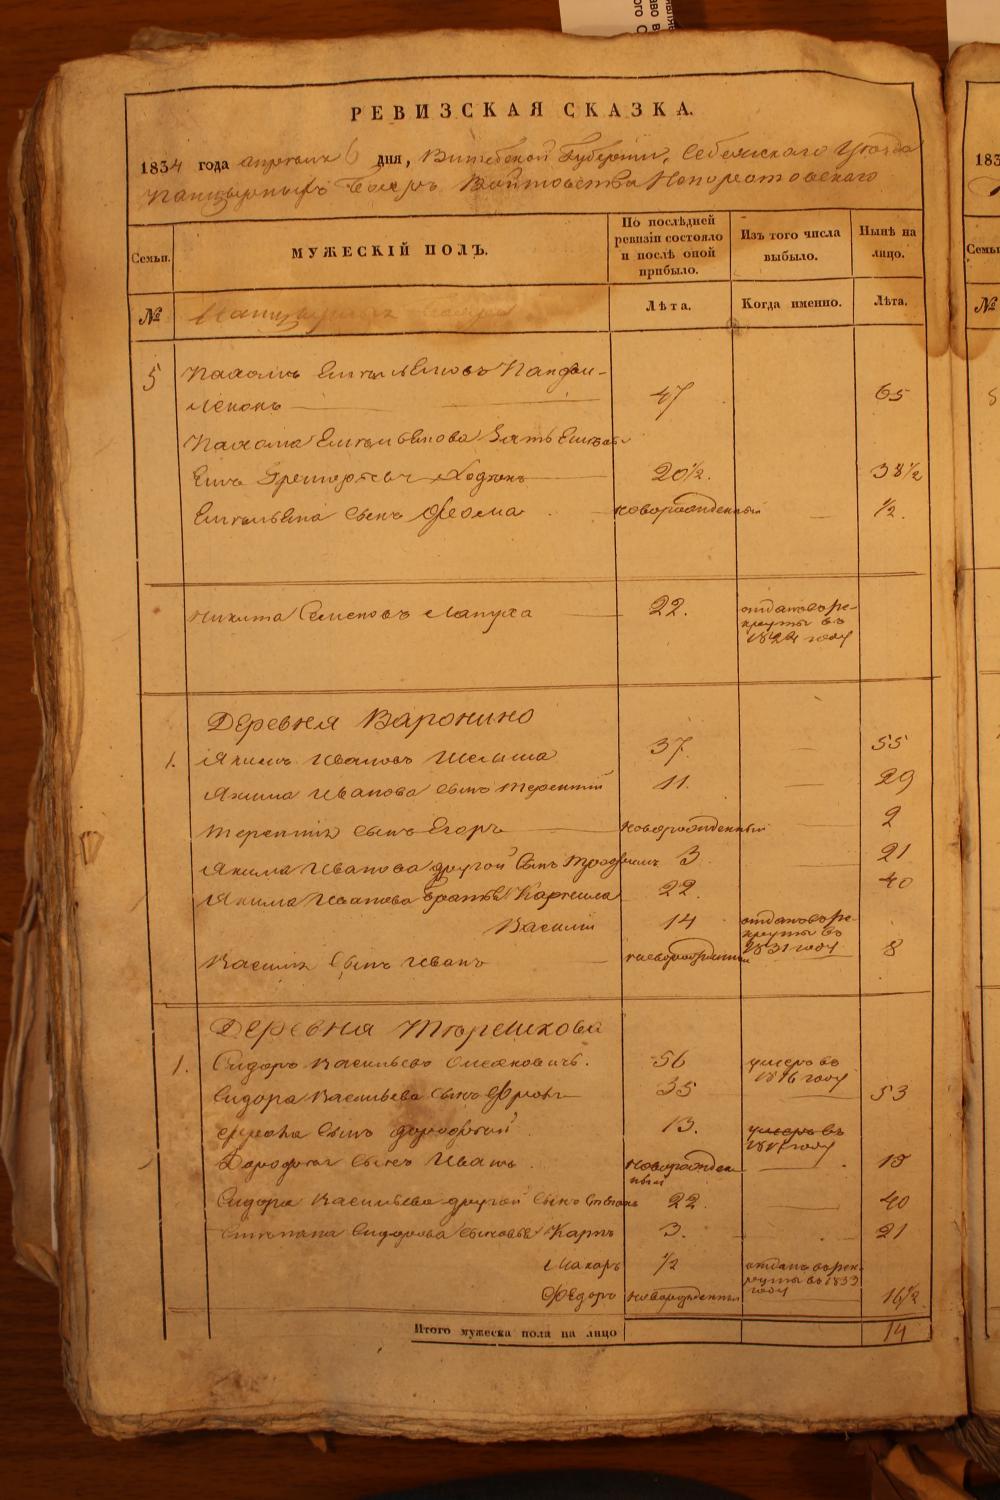 РЕВИЗСКАЯ СКАЗКА.
1834 года апреля 6 дня, Витебской Губернии, Себежскаго Уезда
Панцырныхъ Бояръ Войтовства Непоротовскаго
Семьи.
МУЖЕСКІЙ ПОЛЪ.
По послѣдней ревизіи состояло и послѣ оной прибыло.
Изъ того числа выбыло.
Нынѣ на лицо.
№
Панцырныхъ Бояръ
Лѣта.
Когда именно.
Лѣта.
5 Пахомъ Емельяновъ
47 65
Пахома Емельянова Зять Емельянъ
Григорьевъ 20½. 38½
Емельяна Сынъ Фома новорожденный ½.
Никита Семеновъ Лапуха 22. отданъ въ рекруты въ 1824 году
Деревня Варонино
1. Якимъ Ивановъ 37. 55
Якима Иванова сынъ Терентій 11. 29
Терентія сынъ Егоръ новорожденный 2
Якима Иванова другой Сынъ Трофимъ 3 21
Якима Иванова братья Карнила 22. 40
Василій 14 отданъ въ рекруты въ 1831 году
Василія Сынъ Иванъ новорожденный 8
Деревня
1. Сидоръ Васильевъ 56 умеръ въ 1816 году
Сидора Васильева Сынъ 35 53
Сынъ Дорофей 13. умеръ въ году
Дорофея Сынъ Иванъ новорожденный 15
Сидора Васильева другой Сынъ Степанъ 22. 40
Степана Сидорова Сыновья Карпъ 3. 21
Макаръ ½ отданъ въ рекруты въ 1833 году
Федоръ новорожденный 16½
Итого мужеска пола на лицо 14